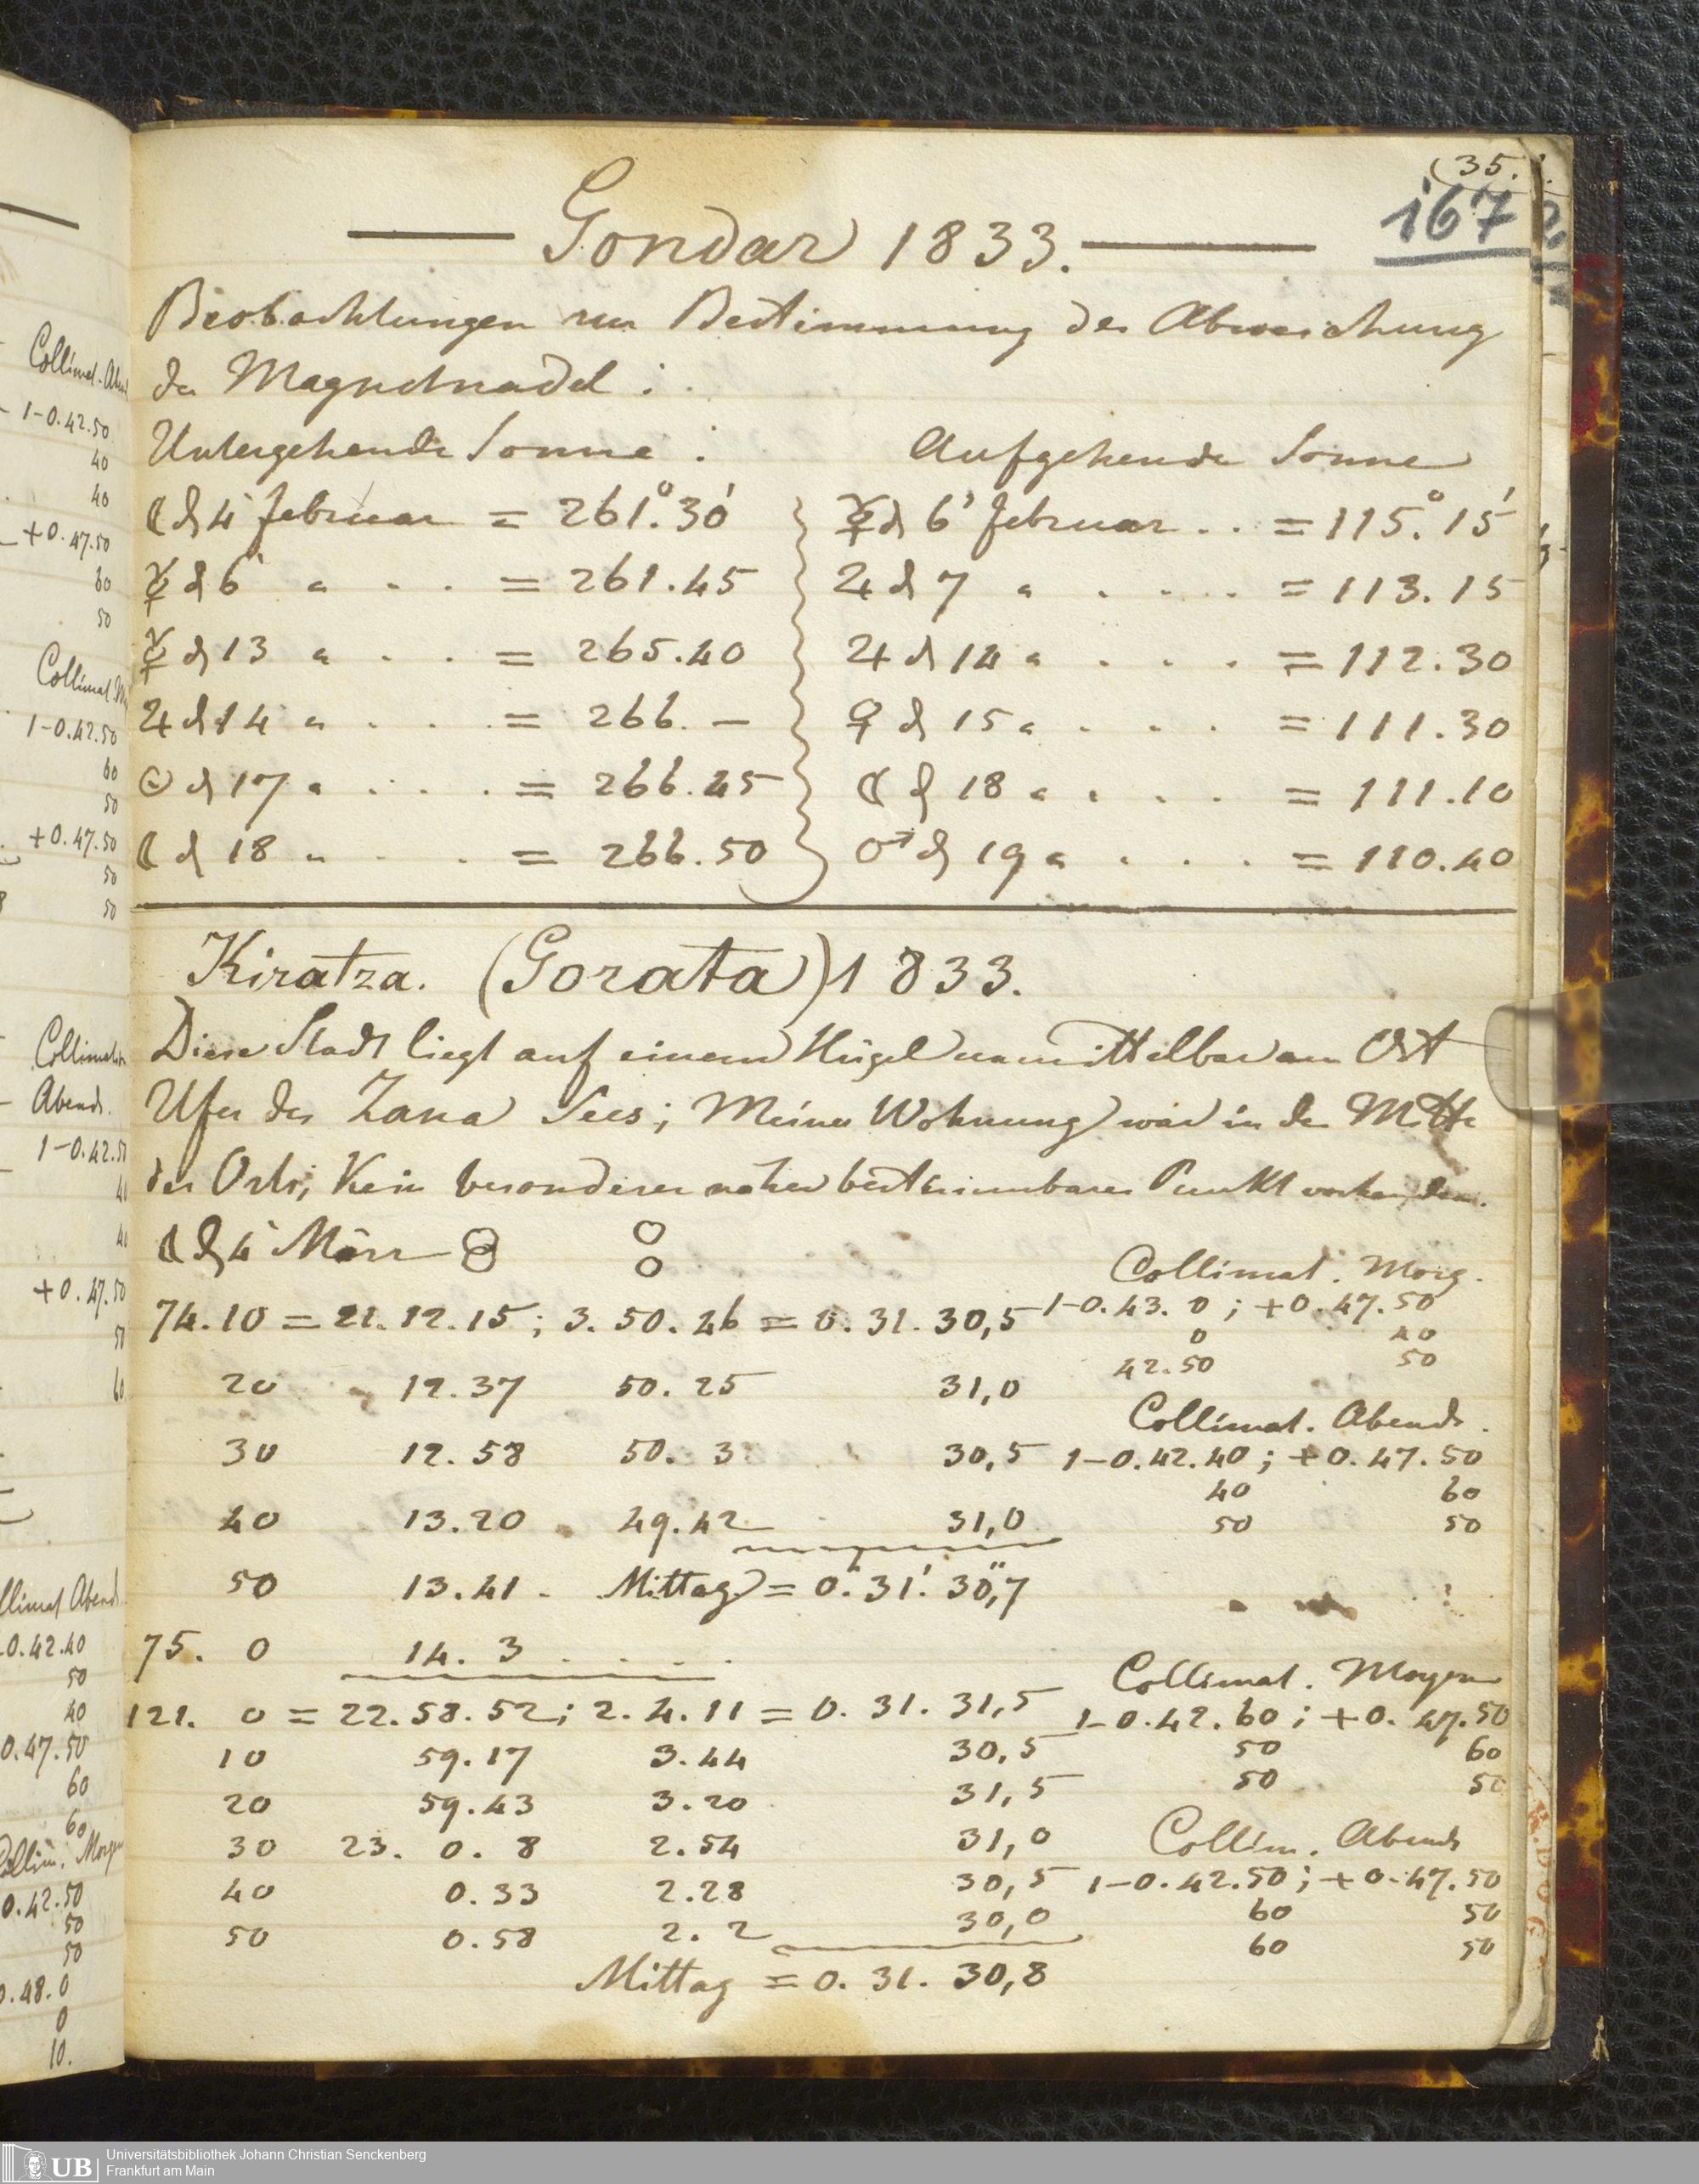 (35.
167
Gondar 1833.
Beobachtungen zur Bestimmung der Abweichung
der Magnetnadel :
Untergehende Sonne : Aufgehende Sonne
☾ d 4 Februar = 261.°30' ☿ d 6' Februar .. = 115.°15'
☿ d 6 " . . = 261.45 ♃ d 7 " . . . . = 113.15
☿ d 13 " . . = 265.40 ♃ d 14 " . . . = 112.30
♃ d 14 " . . . = 266. — ♀ d 15 " . . . = 111.30
☉ d 17 " . . . . = 266.45 ☾ d 18 " . . . . = 111.10
☾ d 18 " . . . = 266.50 ♂ d 19 " . . . . = 110.40
Kiratza. (Gorata) 1833.
Diese Stadt liegt auf einem Hügel unmittelbar am Ost
Ufer des Zana Sees; Meine Wohnung war in der Mitte
des Orts; Kein besonderer naher bestimmbarer Punkt vorhanden.
☾ d 4 März
Collimat. Morg.
74.10 = 21.12.15; 3.50.46 = 0.31.30,5 1-0.43.0; +0.47.50
0 40
42.50 50
20 12.37 50.25 31,0
Collimat. Abends.
30 12.58 50. 3 30,5 1-0.42.40; +0.47.50
40 60
40 13.20 49.42 31,0 50 50
50 13.41 . Mittag = 0.h31.'30,"7
75. 0 14. 3 . . . .
Collimat. Morgen
121. 0 = 22.58.52; 2.4.11 = 0.31.31,5 1-0.42.60; +0.47.50
10 59.17 3.44 30,5 50 60
20 59.43 3.20 31,5 50 50
30 23. 0. 8 2.54 31,0 Collim. Abends
40 0.33 2.28 30,5 1-0.42.50; +0.47.50
50 0.58 2. 2 30,0 60 50
60 50
Mittag = 0.31.30,8
Collimat. Abend
1-0.42.50
40
40
+0.47.50
60
50
Collimat
1-0.42.50
60
50
+0.47.50
50
50
Collimation
Abends.
1-0.42.
+0.47.50
Abends
0.42.40
50
40
0.47.50
60
60
Collim. Morgen
0.42.50
50
50
0.48.0
0
10.
UB Universitätsbibliothek Johann Christian Senckenberg
Frankfurt am Main